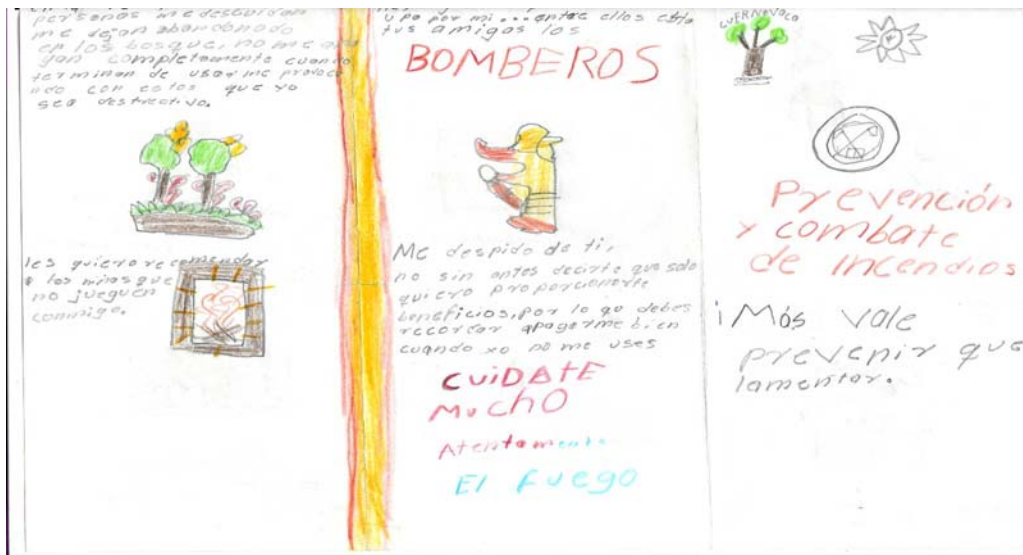 personas me descuidan
me dejan abandonado
en los bosque, no me apa
gan completamente cuando
terminan de usarme provoca
ndo con estos que yo
sea destructivo.
les quiero recomendar
a los niños que
no jueguen
conmigo.
upa por mi... entre ellos esta
tus amigos los
BOMBEROS
Me despido de ti,
no sin antes decirte que solo
quiero proporcionarte
beneficios, por lo qo debes
recordar apagarme bien
cuando xo no me uses
CUIDATE
MUCHO
Atentamente
El fuego
CUERNAVACA
Prevención
y combate
de incendios
¡Más vale
prevenir que
lamentar.